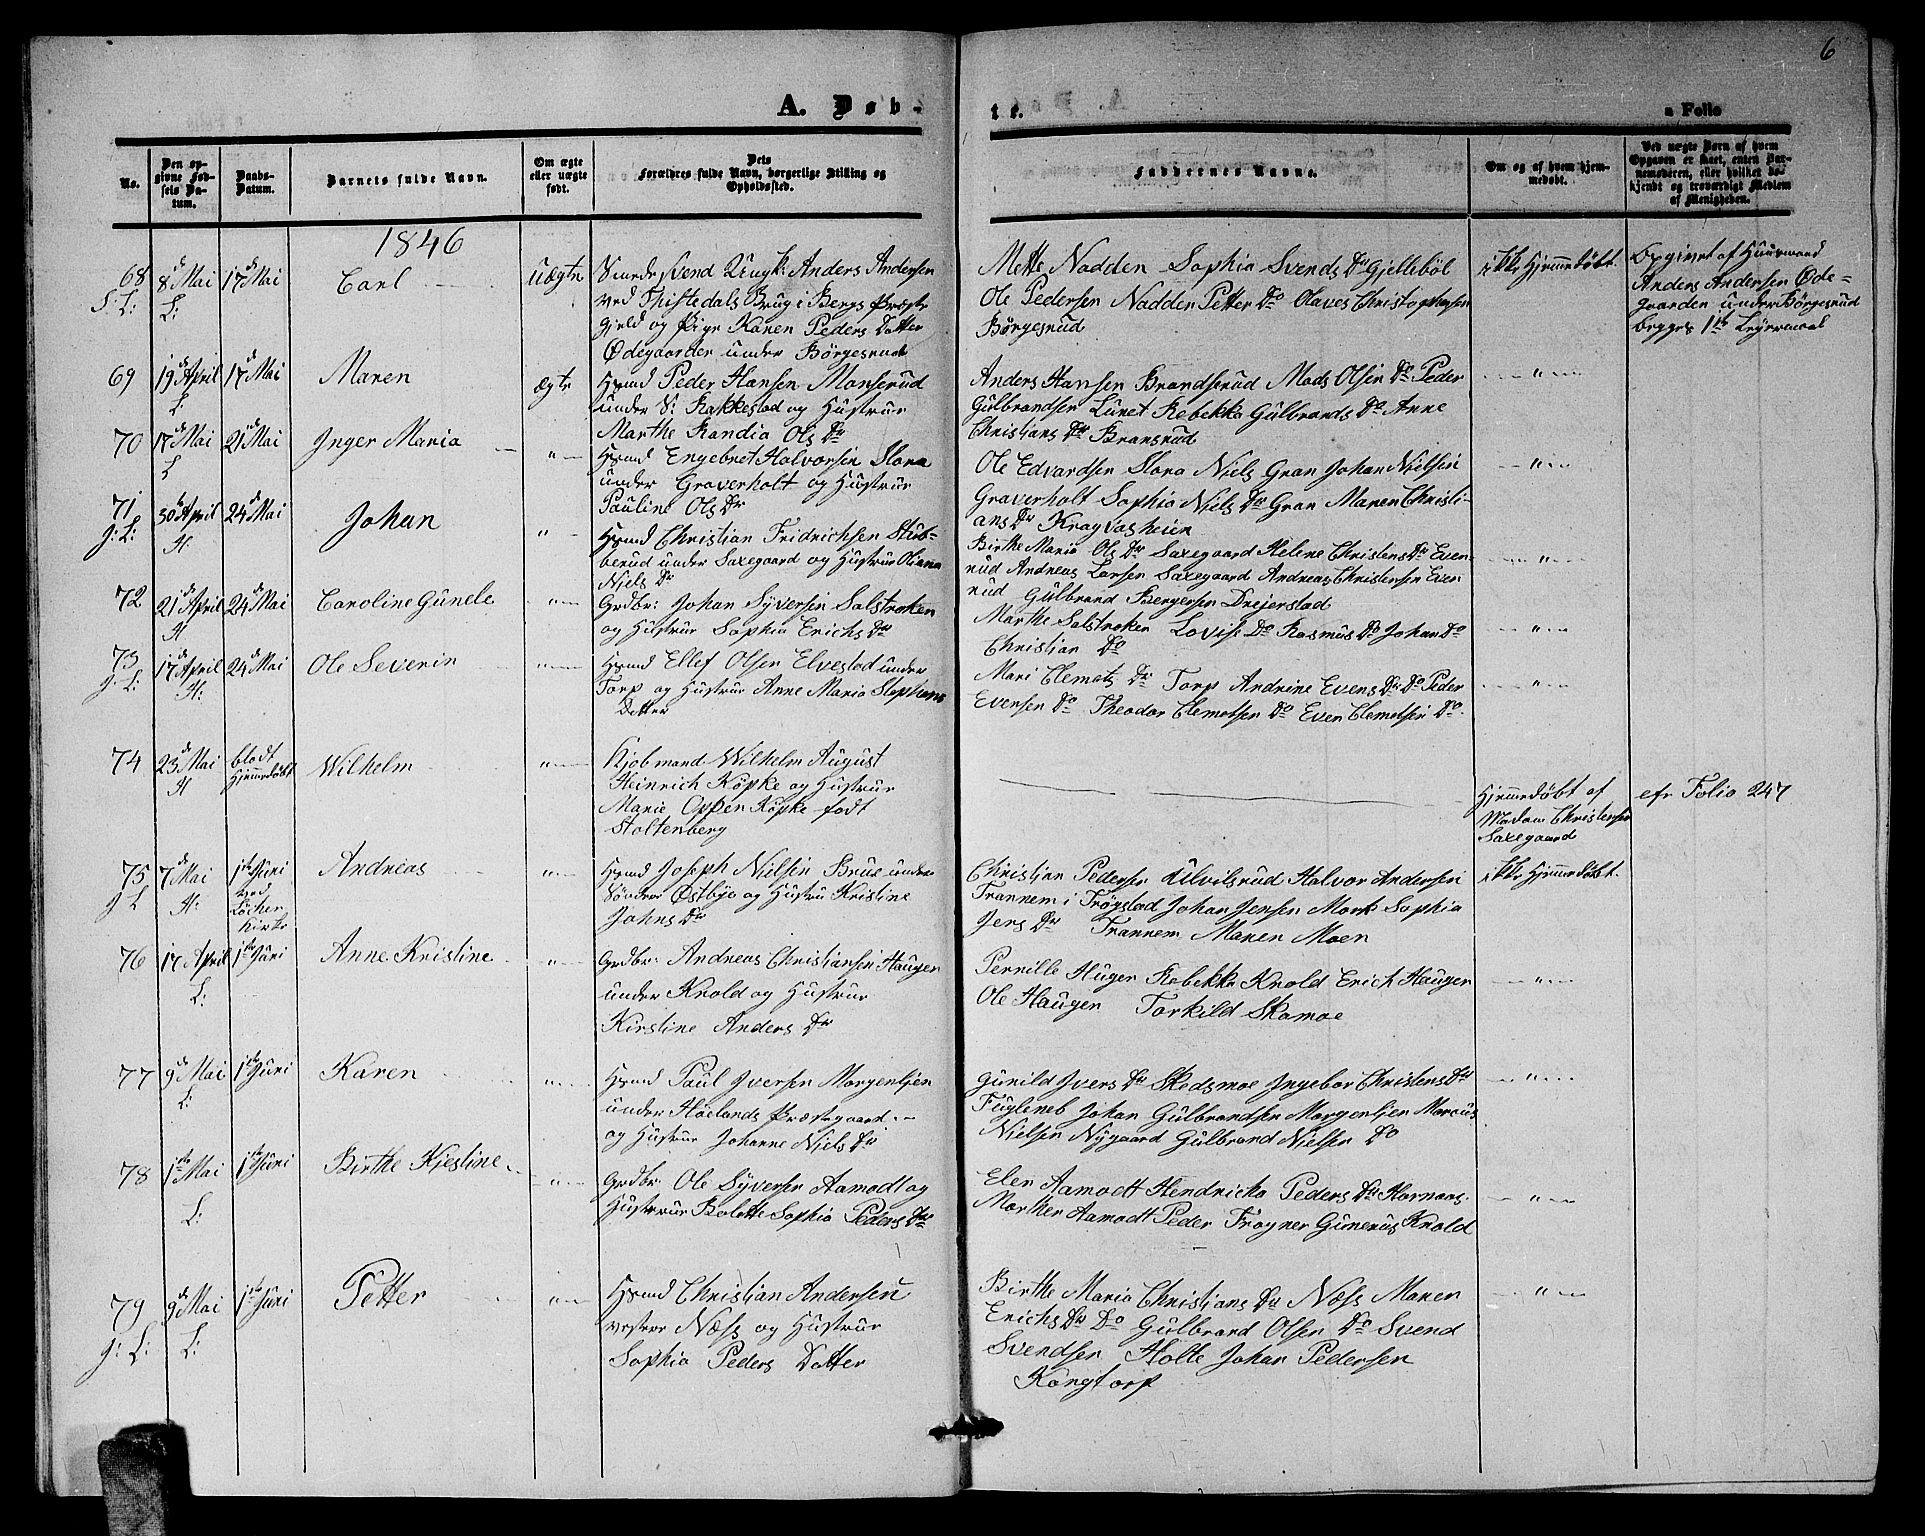 6
A. Døb-
te.
a Folio
No.
Den opgivne Fødsels Datum.
Daabs-Datum.
Barnets fulde Navn.
Om ægte eller uægte født.
Dets Forældres fulde Navn, borgerlige Stilling og Opholdssted.
Faddernes Navne.
Om og af hvem hjemmedøbt.
Ved uægte Børn af hvem Opgaven er skeet, enten Barnemoderen, eller hvilket bekjendt og troværdigt Medlem af Menigheden.
1846
68
S: L:
8de Mai
L:
17de Mai
Carl
uægte
Smedesvend Ungk: Anders Andersen
ved Thistedals Brug i Bergs Præste
gjeld og Pige Karen Peders Datter
Ødegaarden under Börgesrud
Mette Nadden Sophia Svends Dtr Gjelleböl
Ole Pedersen Nadden Petter Do Olaves Christophersen
Börgesrud
ikke Hjemmedöbt
Opgivet af Huusmand
Anders Andersen Öde-
gaarden under Börgesrud
begges 1ste Leyermaal
69
19de April
L:
17de Mai
Maren
ægte
Hsmd Peder Hansen Monserud
under S: Rakkestad og Hustrue
Marthe Randia Ols Dtr
Anders Hansen Brandsrud Mads Olsen Do Peder
Gulbrandsen Lunet Rebekka Gulbrands Do Anne
Christians Dtr Bransrud
— " —
70
17de Mai
L
21de Mai
Inger Maria
" —
Hsmd Engebret Halvorsen Slora
under Graverholt og Hustrue
Pauline Ols Dtr
Ole Edvardsen Slora Niels Gran Johan Nielsen
Graverholt Sophia Niels Dtr Gran Maren Christi-
ans Dtr Kragvasheien
— " —
71
g: L:
30te April
H:
24de Mai
Johan
" —
Hsmd Christian Fridrichsen Stub-
berud under Saxegaard og Hustrue Oliana
Niels Dtr
Birthe Maria Ols Dtr Saxegaard Helene Christens Dtr Even-
rud Andreas Larsen Saxegaard Andreas Christensen Even
rud Gulbrand Bergersen Drejerstad
— " —
72
21de April
H
24de Mai
Caroline Gunele
" —
Grdbr: Johan Syversen Salstroken
og Hustrue Sophia Erichs Dtr
Marthe Salstroken Lovise Do Rasmus Do Johan Do
Christian Do
— " —
73
g: L:
17de April
H:
24de Mai
Ole Severin
" —
Hsmd Ellef Olsen Elvestad under
Torp og Hustrue Anne Maria Stephens
Datter
Mari Clemets Dtr Torp Andrine Evens Dtr Do Peder
Evensen Do Theodor Clemetsen Do Even Clemetsen Do.
— " —
74
23de Mai
H
blodt
Hjemmedöbt
Wilhelm
" —
Kjobmand Wilhelm August
Heinrich Köpke og Hustrue
Marie Oppen Köpke født
Stoltenberg
Hjemmedöbt af
Madam Christensen
Saxegaard
cfr Folio 247
75
g L
7de Mai
H:
1ste Juni
ved
Löchen
Kirke
Andreas
" —
Hsmd Joseph Nielsen Brue under
Sönder Østbye og Hustru Kristine
Johns Dtr
Christian Pedersen Ulvilsrud Halvor Andersen
Trannem i Trögstad Johan Jensen Mork Sophia
Jens Dtr Trannem Maren Moen
ikke Hjemmedöbt.
76
17 April
L:
1ste Juni
Anne Kristine
" —
Grdbr: Andreas Christiansen Haugen
under Knold og Hustrue
Kirstine Anders Dtr
Pernille Hugen Rebekka Knold Erich Haugen
Ole Haugen Torkild Skamoe
— " —
77
9de Mai
L:
1ste Juni
Karen
" —
Hsmd Paul Iversen Morgentjen
under Hölands Præstegaard —
og Hustrue Johanne Niels Dtr
Gunild Ivers Dtr Skedsmoe Ingebor Christens Dtr
Fugleneb Johan Gulbrandsen Morgentjen Marcus
Nielsen Nygaard Gulbrand Nielsen Do
— " —
78
1ste Mai
L:
1ste Juni
Birthe Kjestine
" —
Grdbr: Ole Syversen Aamodt og
Hustrue Bolette Sophia Peders Dtr
Elen Aamodt Hendricka Peders Dtr Hornaas
Morthen Aamodt Peder Frogner Gunerus Knold
— " —
79
g: L:
9de Mai
L:
1ste Juni
Petter
" —
Hsmd Christian Andersen
vestre Næss og Hustrue
Sophia Peders Datter
Birthe Maria Christians Dtr Næss Maren
Erichs Dtr Do Gulbrand Olsen Do Svend
Svendsen Holte Johan Pedersen
Kongtorp
— " —